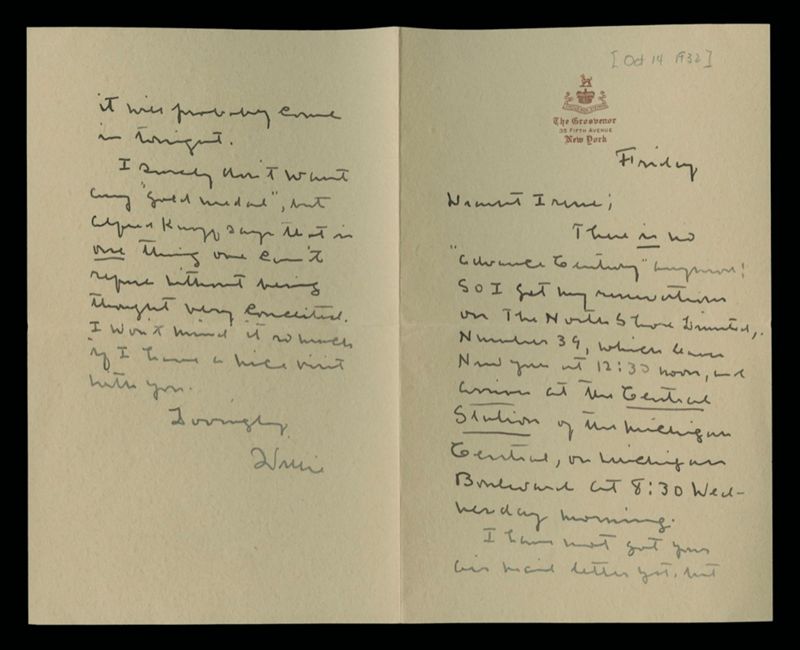 [Oct 14 1932]
The Grosvenor
35 FIFTH AVENUE
New York
Friday
Dearest Irene;
There is no
"advance Century" anymore!
So I get my reservations
on The North Shore Limited,
Number 39, which leaves
New York at 12:30 noon, and
arrives at the Central
Station of the Michigan
Central, on Michigan
Boulevard at 8:30 Wed-
nesday morning.
I have not got your
air mail letter yet, but
it will probably come
in tonight.
I surely don't want
any "gold medal", but
Alfred Knopf says that is
one thing one can't
refuse without being
thought very conceited.
I won't mind it so much
if I have a nice visit
with you.
Lovingly
Willie